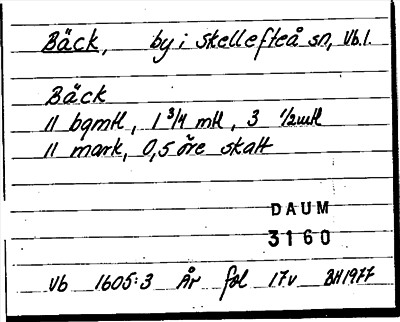 Bäck, by i Skellefteå sn, Vb. l.
Bäck
11 bgmtl, 1 3/4 mtl, 3 1/2 mtl
11 mark, 0,5 öre skatt
DAUM
3160
Vb 1605:3 År fol 17v BH 1977